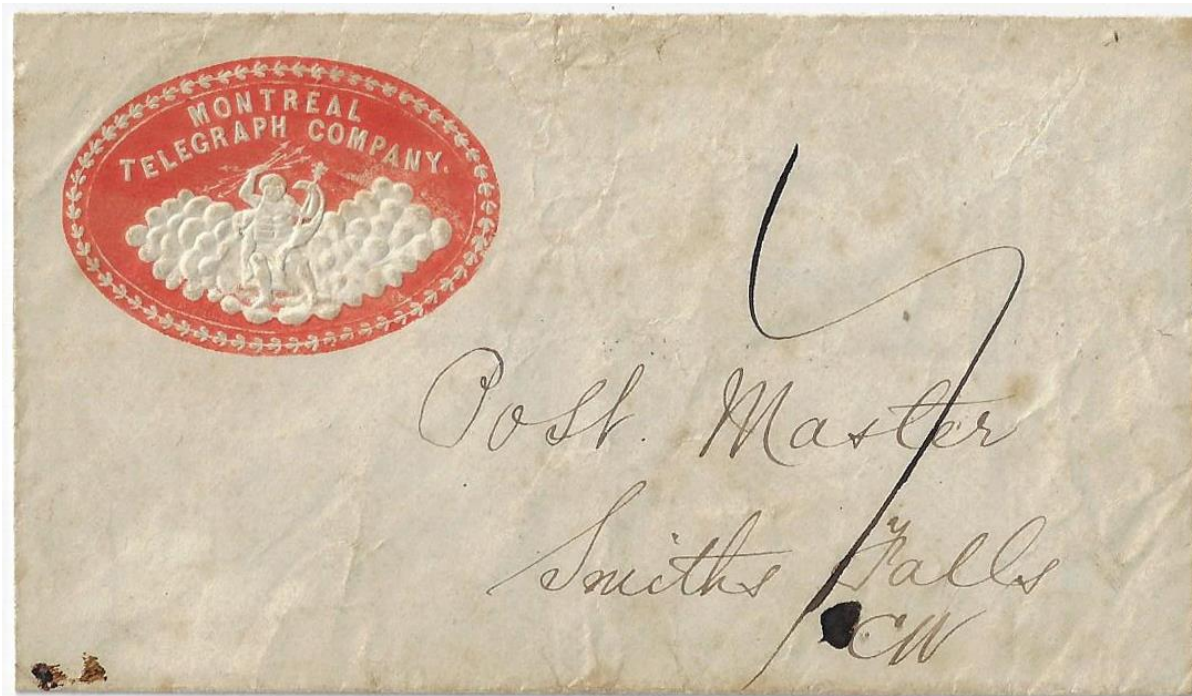 MONTREAL
TELEGRAPH COMPANY.
Post. Master
Smiths Falls
CW